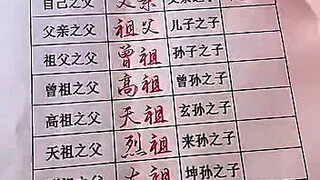 自己之父 父亲 父亲之子
父亲之父 祖父 儿子之子
祖父之父 曾祖 孙子之子
曾祖之父 高祖 曾孙之子
高祖之父 天祖 玄孙之子
天祖之父 烈祖 来孙之子
烈祖之父 太祖 坤孙之子